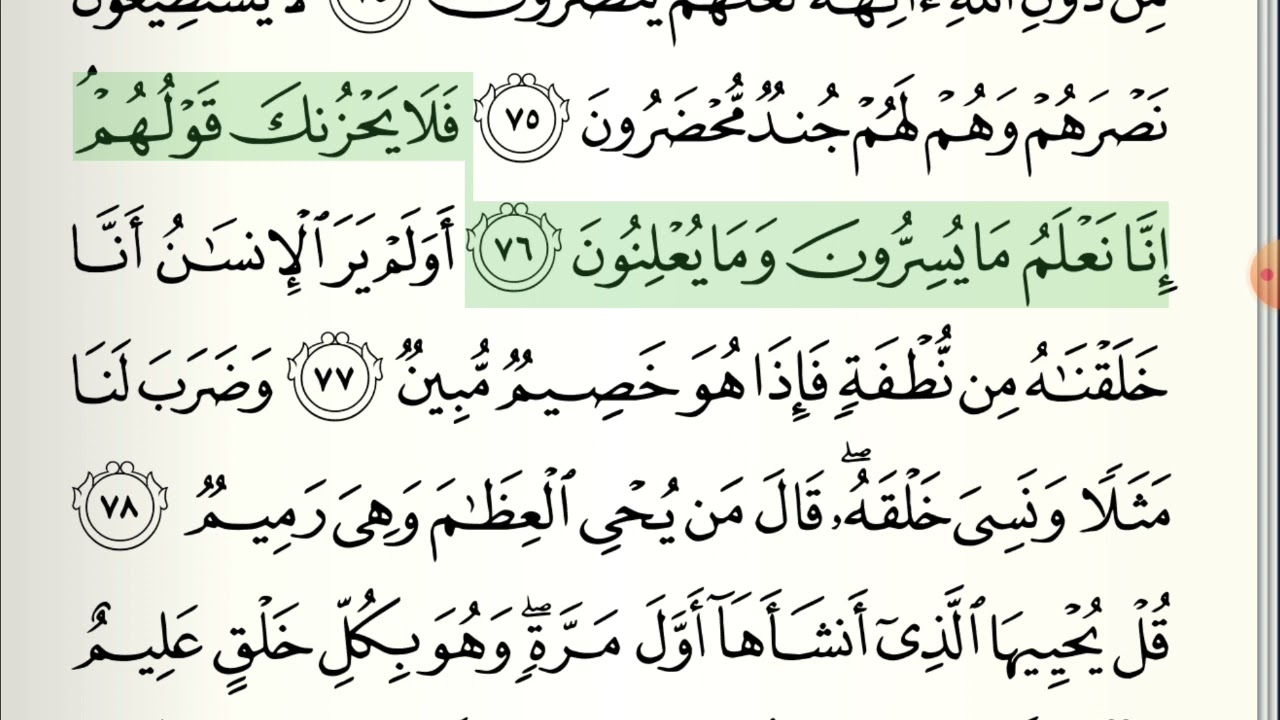 مِن دُونِ ٱللَّهِ ءَالِهَةً لَّعَلَّهُمْ يُنصَرُونَ ٧٤ لَا يَسْتَطِيعُونَ
نَصْرَهُمْ وَهُمْ لَهُمْ جُندٌ مُّحْضَرُونَ ٧٥ فَلَا يَحْزُنكَ قَوْلُهُمْۘ
إِنَّا نَعْلَمُ مَا يُسِرُّونَ وَمَا يُعْلِنُونَ ٧٦ أَوَلَمْ يَرَ ٱلْإِنسَـٰنُ أَنَّا
خَلَقْنَـٰهُ مِن نُّطْفَةٍ فَإِذَا هُوَ خَصِيمٌ مُّبِينٌ ٧٧ وَضَرَبَ لَنَا
مَثَلًا وَنَسِىَ خَلْقَهُۥۖ قَالَ مَن يُحْىِ ٱلْعِظَـٰمَ وَهِىَ رَمِيمٌ ٧٨
قُلْ يُحْيِيهَا ٱلَّذِىٓ أَنشَأَهَآ أَوَّلَ مَرَّةٍۖ وَهُوَ بِكُلِّ خَلْقٍ عَلِيمٌ